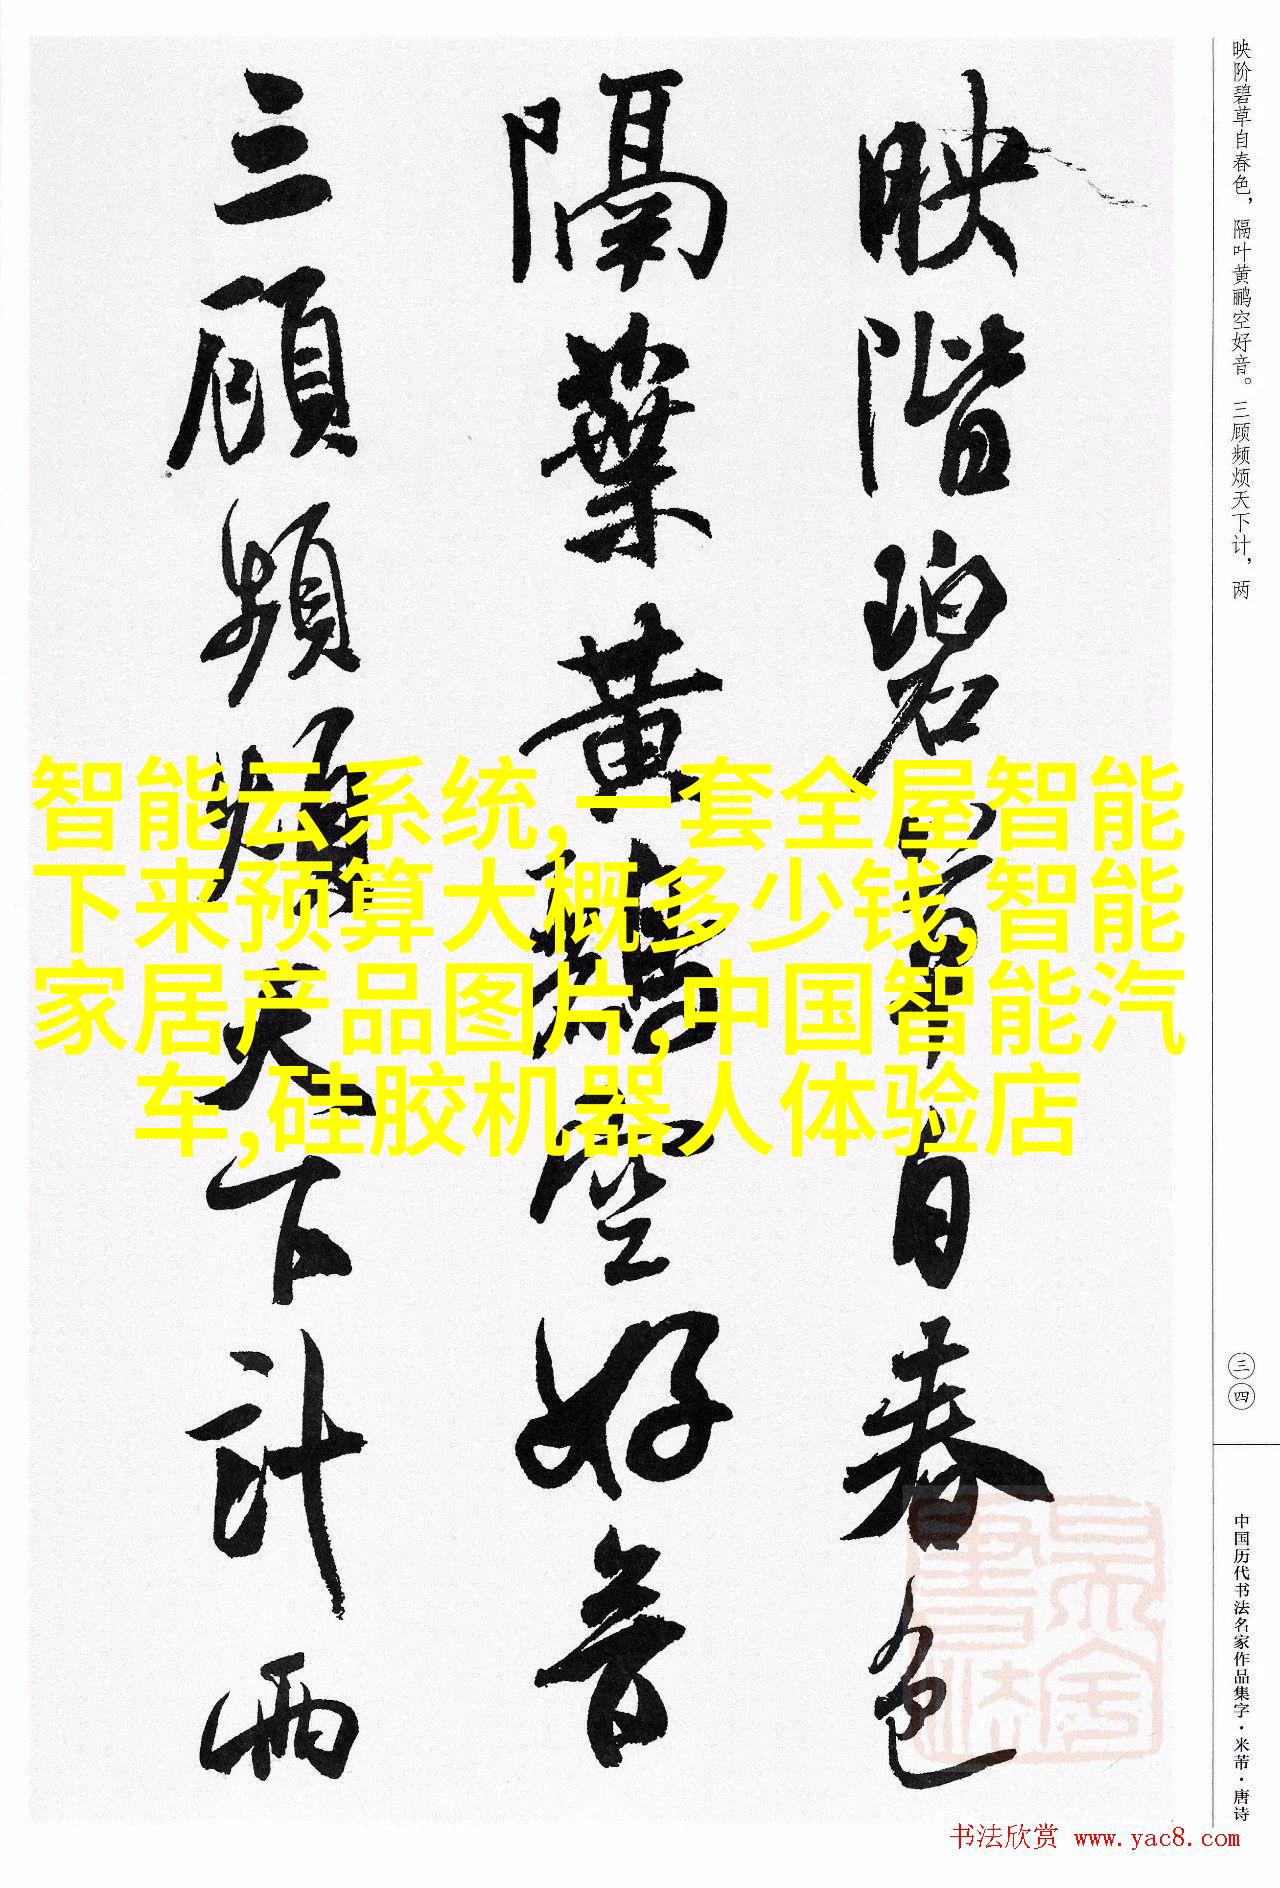 映階碧草自春色
隔葉黃鸝空好音
三顧頻煩天下計兩
智能云系统,一套全屋智能
下来预算大概多少钱,智能
家居产品图片,中国智能汽
车,硅胶机器人体验店
映阶碧草自春色，隔叶黄鹂空好音。三顾频烦天下计，两
三四
中国历代书法名家作品集字·米芾·唐诗
书法欣赏 www.yac8.com